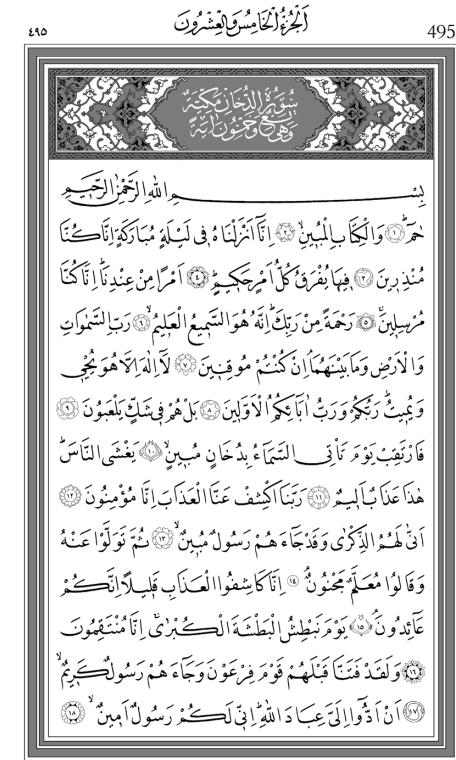 ٤٩٥ اَلْجُزْءُ الْخَامِسُ وَالْعِشْرُونَ 495
سُورَةُ الدُّخَانِ مَكِّيَّةٌ
وَهِيَ تِسْعٌ وَخَمْسُونَ اٰيَةً
بِسْمِ اللّٰهِ الرَّحْمٰنِ الرَّحٖيمِ
حٰمٓ ﴿١﴾ وَالْكِتَابِ الْمُبٖينِ ﴿٢﴾ اِنَّٓا اَنْزَلْنَاهُ فٖى لَيْلَةٍ مُبَارَكَةٍ اِنَّا كُنَّا
مُنْذِرٖينَ ﴿٣﴾ فٖيهَا يُفْرَقُ كُلُّ اَمْرٍ حَكٖيمٍ ﴿٤﴾ اَمْرًا مِنْ عِنْدِنَا اِنَّا كُنَّا
مُرْسِلٖينَ ﴿٥﴾ رَحْمَةً مِنْ رَبِّكَ اِنَّهُ هُوَ السَّمٖيعُ الْعَلٖيمُ ﴿٦﴾ رَبِّ السَّمٰوَاتِ
وَالْاَرْضِ وَمَا بَيْنَهُمَا اِنْ كُنْتُمْ مُوقِنٖينَ ﴿٧﴾ لَٓا اِلٰهَ اِلَّا هُوَ يُحْيٖى
وَيُمٖيتُ رَبُّكُمْ وَرَبُّ اٰبَٓائِكُمُ الْاَوَّلٖينَ ﴿٨﴾ بَلْ هُمْ فٖى شَكٍّ يَلْعَبُونَ ﴿٩﴾
فَارْتَقِبْ يَوْمَ تَاْتِى السَّمَٓاءُ بِدُخَانٍ مُبٖينٍ ﴿١٠﴾ يَغْشَى النَّاسَ
هٰذَا عَذَابٌ اَلٖيمٌ ﴿١١﴾ رَبَّنَا اكْشِفْ عَنَّا الْعَذَابَ اِنَّا مُؤْمِنُونَ ﴿١٢﴾
اَنّٰى لَهُمُ الذِّكْرٰى وَقَدْ جَٓاءَهُمْ رَسُولٌ مُبٖينٌ ﴿١٣﴾ ثُمَّ تَوَلَّوْا عَنْهُ
وَقَالُوا مُعَلَّمٌ مَجْنُونٌ ﴿١٤﴾ اِنَّا كَاشِفُوا الْعَذَابِ قَلٖيلًا اِنَّكُمْ
عَٓائِدُونَ ﴿١٥﴾ يَوْمَ نَبْطِشُ الْبَطْشَةَ الْكُبْرٰى اِنَّا مُنْتَقِمُونَ
﴿١٦﴾ وَلَقَدْ فَتَنَّا قَبْلَهُمْ قَوْمَ فِرْعَوْنَ وَجَٓاءَهُمْ رَسُولٌ كَرٖيمٌ
﴿١٧﴾ اَنْ اَدُّٓوا اِلَىَّ عِبَادَ اللّٰهِ اِنّٖى لَكُمْ رَسُولٌ اَمٖينٌ ﴿١٨﴾